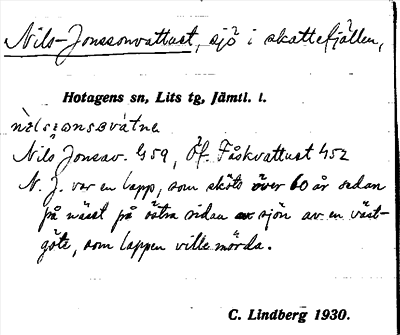 Nils-Jonssonvattust, sjö i skattefjällen,
Hotagens sn, Lits tg, Jämtl. l.
Nils Jonsav. G59, Öf. Fåskvattust G52
N. J. var en lapp, som sköts över 60 år sedan
på näset på östra sidan av sjön av en väst-
göte, som lappen ville mörda.
C. Lindberg 1930.